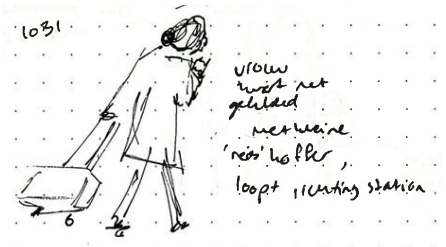 1031
vrouw
net
gekleed
met kleine
'reis' koffer,
loopt richting station